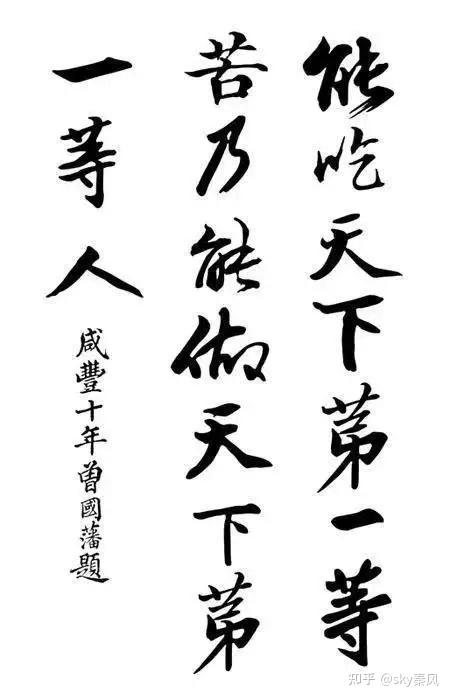 能吃天下第一等
苦乃能做天下第
一等人
咸豐十年曾國藩題
知乎 @sky秦风